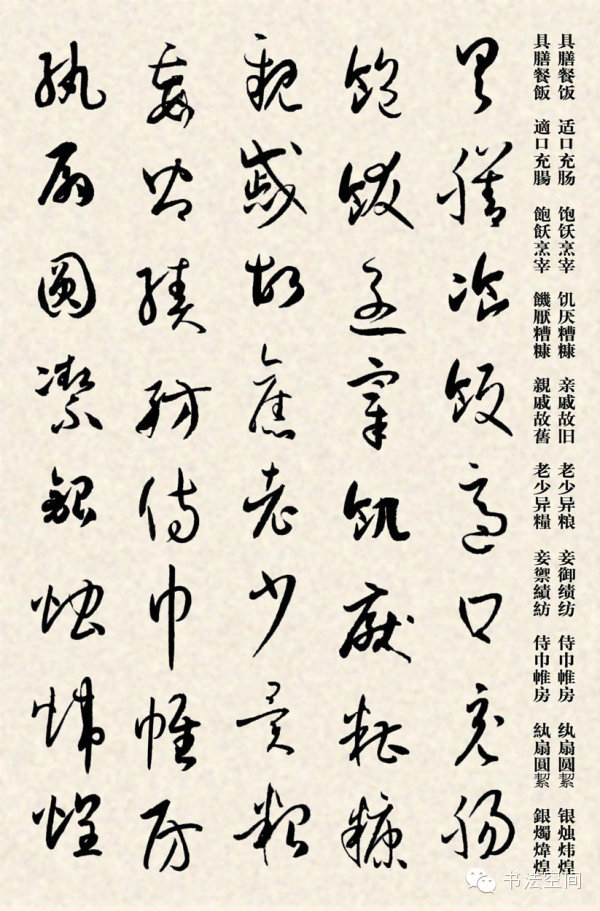 具膳餐饭 适口充肠 饱饫烹宰 饥厌糟糠 亲戚故旧 老少异粮 妾御绩纺 侍巾帷房 纨扇圆絜 银烛炜煌
具膳餐飯 適口充腸 飽飫烹宰 饑厭糟糠 親戚故舊 老少异糧 妾禦績紡 侍巾帷房 紈扇圓絜 銀燭煒煌
具膳飡飯適口充腸
飽飫烹宰飢厭糟糠
親戚故舊老少異粮
妾御績紡侍巾帷房
紈扇圓潔銀燭煒煌
书法空间